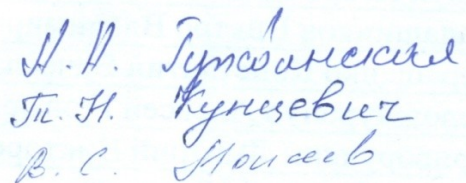 Н. Н. Гужванская
Т. Н. Кунцевич
В. С. Моисеев